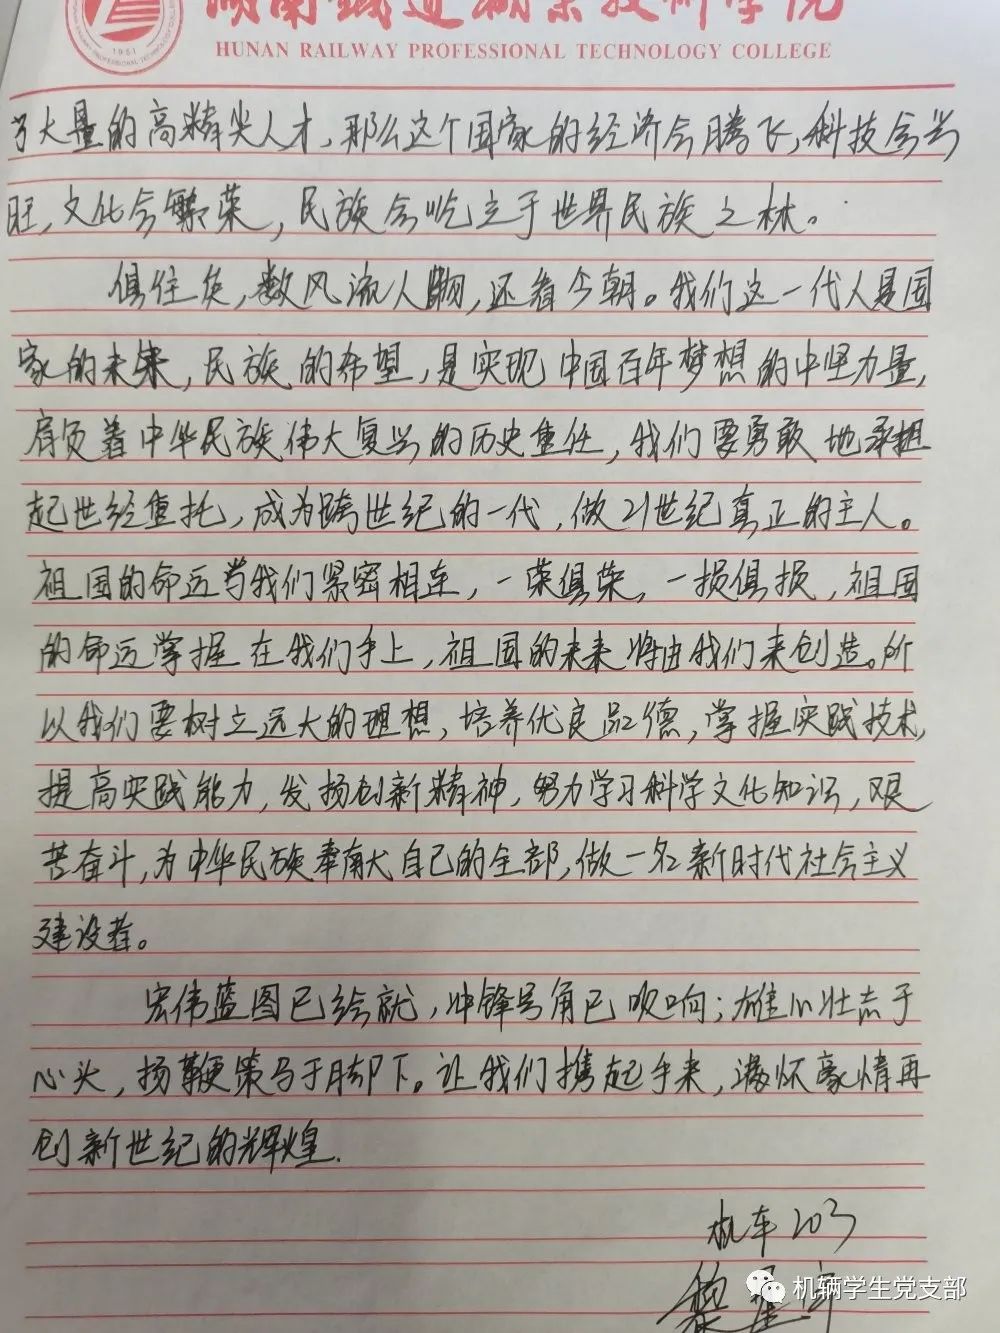 湖南铁道职业技术学院
HUNAN RAILWAY PROFESSIONAL TECHNOLOGY COLLEGE
1951
了大量的高精尖人才，那么这个国家的经济会腾飞，科技会兴
旺，文化会繁荣，民族会屹立于世界民族之林。
俱往矣，数风流人物，还看今朝。我们这一代人是国
家的未来，民族的希望，是实现中国百年梦想的中坚力量，
肩负着中华民族伟大复兴的历史重任，我们要勇敢地承担
起世经重托，成为跨世纪的一代，做21世纪真正的主人。
祖国的命运与我们紧密相连，一荣俱荣，一损俱损，祖国
的命运掌握在我们手上，祖国的未来将由我们来创造。所
以我们要树立远大的理想，培养优良品德，掌握实践技术，
提高实践能力，发扬创新精神，努力学习科学文化知识，艰
苦奋斗，为中华民族奉献自己的全部，做一名新时代社会主义
建设者。
宏伟蓝图已绘就，冲锋号角已吹响；雄心壮志于
心头，扬鞭策马于脚下。让我们携起手来，满怀豪情再
创新世纪的辉煌.
机车203
黎星宇
机辆学生党支部